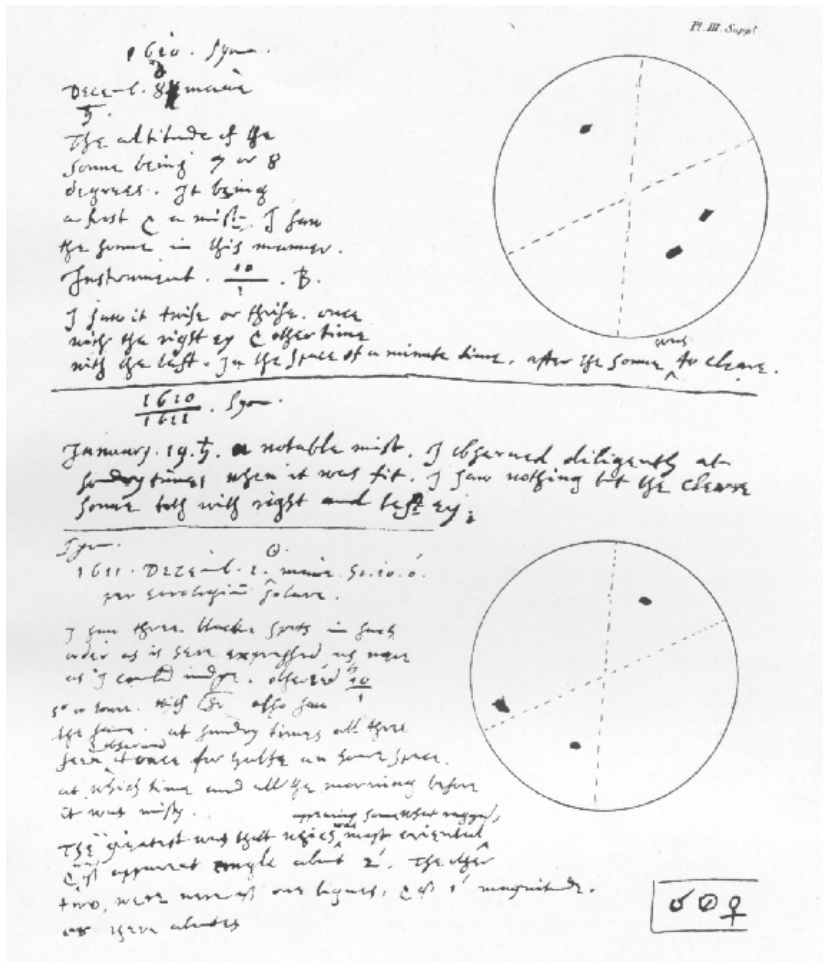 Pl. III. Suppl
1610. Syon.
Decemb. 8 mane
♄.
The altitude of the
sonne being 7 or 8
degrees. It being
a frost & a mist. I saw
the sonne in this manner.
Instrument. 10/1. B.
I saw it twise or thrise. once
with the right ey & other time
with the left. In the space of a minute time. after the sonne was to cleare.
1610/1611. Syon.
January. 19. ♄. a notable mist. I observed diligently at
sondry times when it was fit. I saw nothing but the cleare
sonne both with right and left ey.
Syon. ☉.
1611. Decemb. 1. mane. ho. 10. 0'.
per horologium solare.
I saw three blacke spots in such
order as is here expressed as nere
as I could iudge. observed 10/1
The same. at sundry times all three
seen & observed at once for halfe an houre space.
at which time and all the morning before
it was misty.
The greatest was that which was most oriental appearing somewhat ragged,
& his apparent angle about 2'. The other
two, were nere of one bignes. & of 1' magnitude.
or there aboutes
☌ ☉ ♀